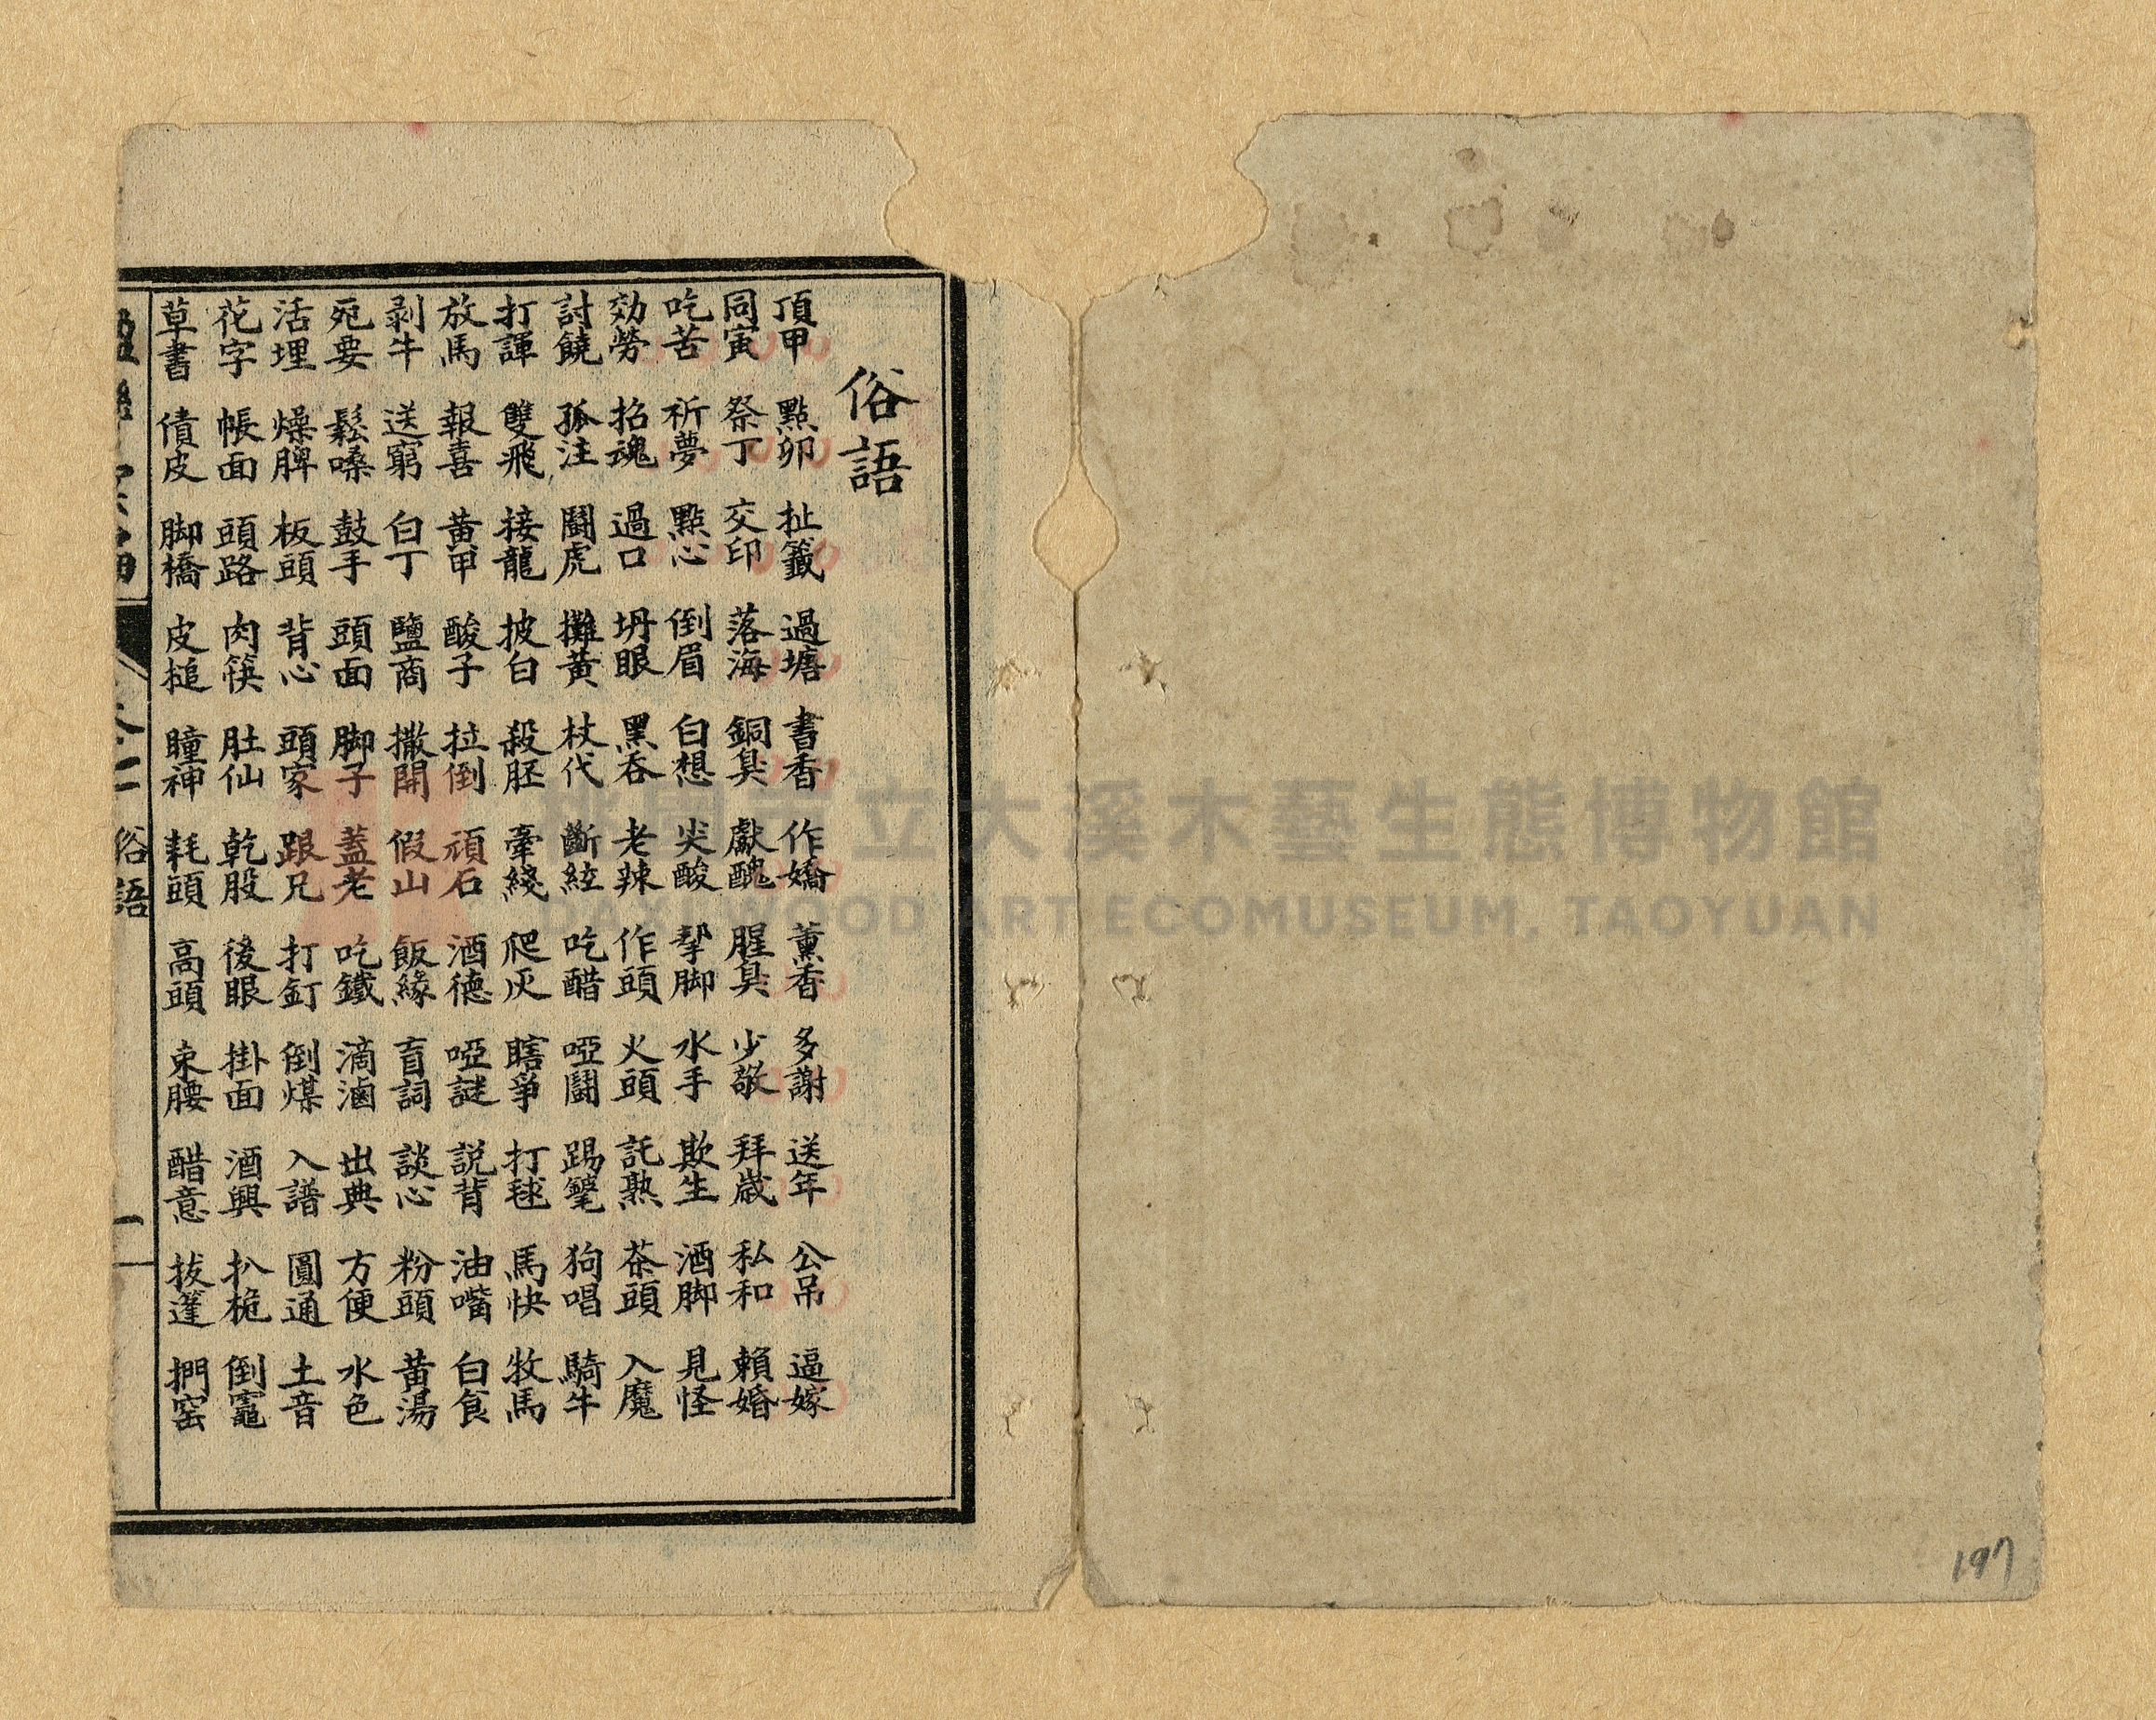 俗語
頂甲 點卯 扯籤 過塘 書香 作嬌 薰香 多謝 送年 公吊 逼嫁
同寅 祭丁 交印 落海 銅臭 獻醜 腥臭 少敬 拜歲 私和 賴婚
吃苦 祈夢 點心 倒眉 白想 尖酸 拏脚 水手 欺生 酒脚 見怪
効勞 招魂 過口 坍眼 黑吞 老辣 作頭 火頭 託熟 茶頭 入魔
討饒 孤注 鬪虎 攤黃 杖代 斷絃 吃醋 啞鬪 踢毽 狗唱 騎牛
打諢 雙飛 接龍 披白 殺胚 牽綫 爬灰 瞎爭 打毬 馬快 牧馬
放馬 報喜 黃甲 酸子 拉倒 頑石 酒德 啞謎 説背 油嘴 白食
剥牛 送窮 白丁 鹽商 撒開 假山 飯緣 盲詞 談心 粉頭 黃湯
宛要 鬆嗓 鼓手 頭面 脚子 蓋老 吃鐵 滴滷 出典 方便 水色
活埋 燥脾 板頭 背心 頭家 跟兄 打釘 倒煤 入譜 圓通 土音
花字 帳面 頭路 肉筷 肚仙 乾股 後眼 掛面 酒興 扒桅 倒竈
草書 債皮 脚橋 皮槌 瞳神 耗頭 高頭 束腰 醋意 拔篷 捫窑
俗語 一
桃園市立大溪木藝生態博物館
DAXI WOOD ART ECOMUSEUM, TAOYUAN
197